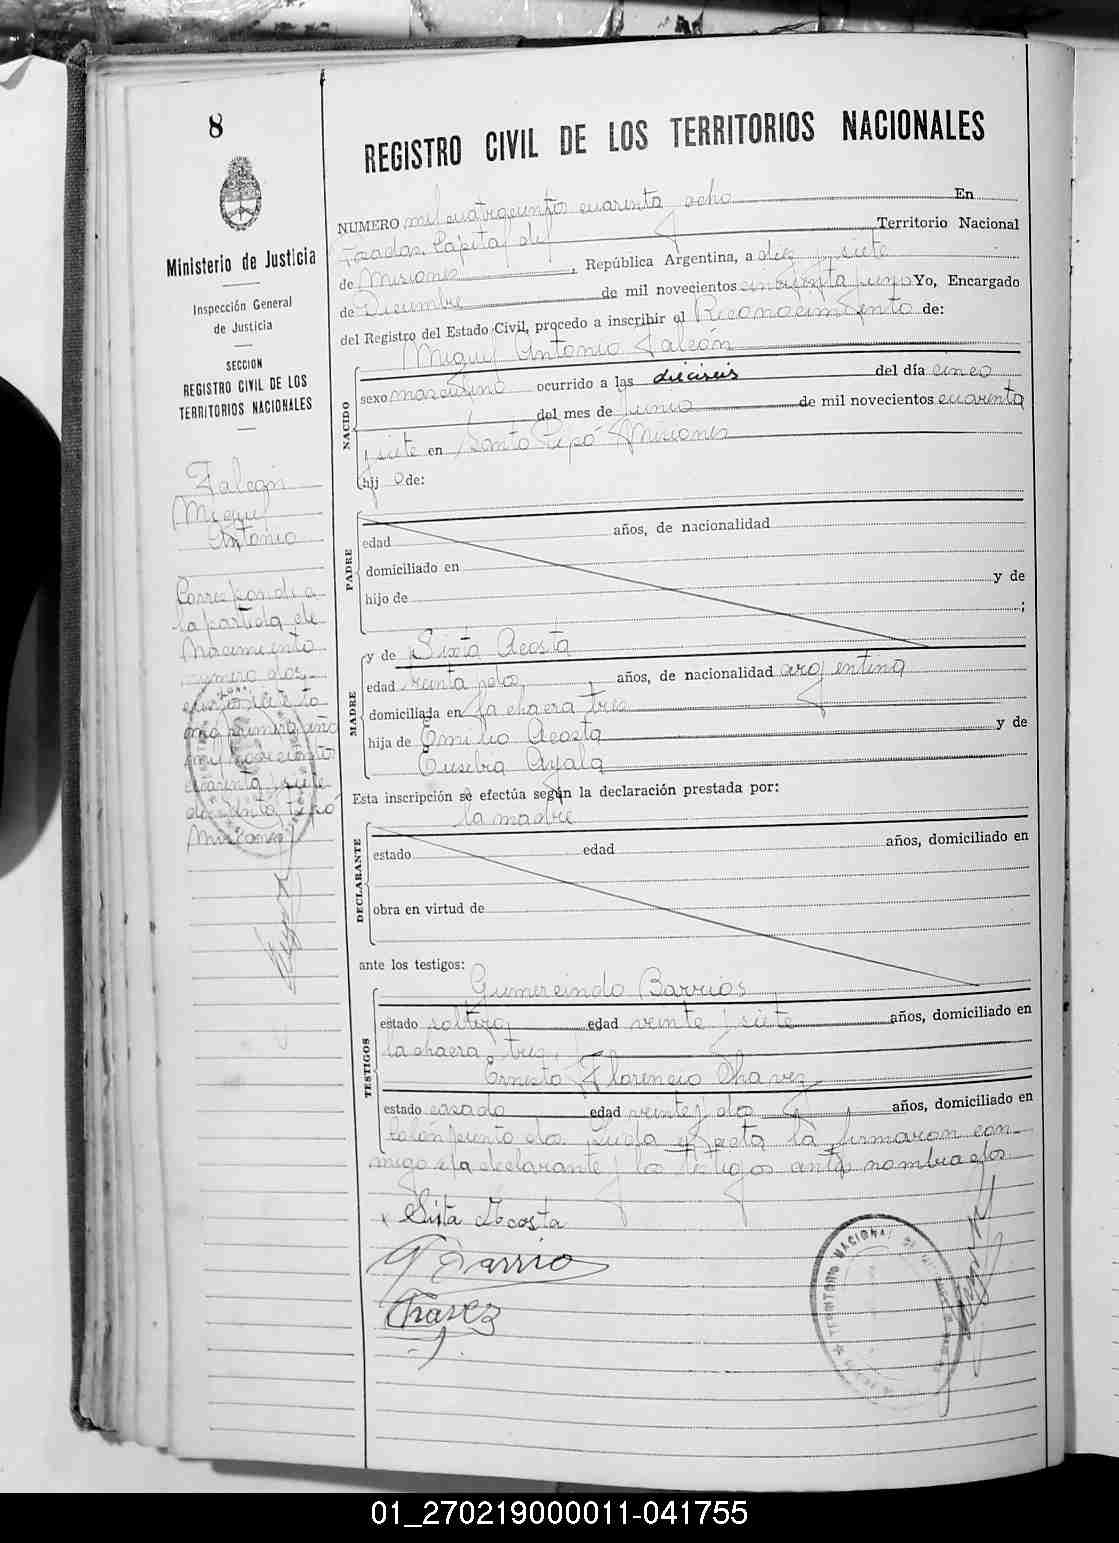 8
REGISTRO CIVIL DE LOS TERRITORIOS NACIONALES
Ministerio de Justicia
Inspección General
de Justicia
SECCION
REGISTRO CIVIL DE LOS
TERRITORIOS NACIONALES
Falcón
Miguel
Antonio
Corresponde a
la partida de
Nacimiento
número dos-
primero año
mil novecientos
cuarenta y siete
de Santo Pipó
Misiones
NUMERO mil cuatrocientos cuarenta ocho En
Posadas, Capital del Territorio Nacional
de Misiones, República Argentina, a diez y siete
de Diciembre de mil novecientos cincuenta Yo, Encargado
del Registro del Estado Civil, procedo a inscribir el Reconocimiento de:
Miguel Antonio Falcón
NACIDO
sexo masculino ocurrido a las dieciseis del día cinco
del mes de Junio de mil novecientos cuarenta
y siete en Santo Pipó Misiones
hijo de:
PADRE
edad años, de nacionalidad
domiciliado en
hijo de y de
;
MADRE
y de Sixta Acosta
edad treinta y dos, años, de nacionalidad argentina
domiciliada en la chacra tres
hija de Emilio Acosta y de
Eusebia Ayala
Esta inscripción se efectúa según la declaración prestada por:
la madre
DECLARANTE
estado edad años, domiciliado en
obra en virtud de
ante los testigos:
TESTIGOS
Gumercindo Barrios
estado soltero edad veinte y siete años, domiciliado en
la chacra tres,
Ernesto Florencio Chavez
estado casado edad veinte y dos años, domiciliado en
Colón ciento dos. Leída el acta la firmaron con-
migo la declarante y los testigos antes nombrados.
x Sista Acosta
G Barrio
Chavez
TERRITORIO NACIONAL DE MISIONES
01_270219000011-041755